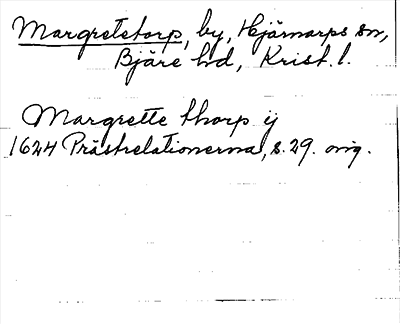 Margretetorp, by, Hjärnarps sn,
Bjäre hd, Krist. l.
Margrette thorp ij
1624 Prästrelationerna, s. 29. orig.